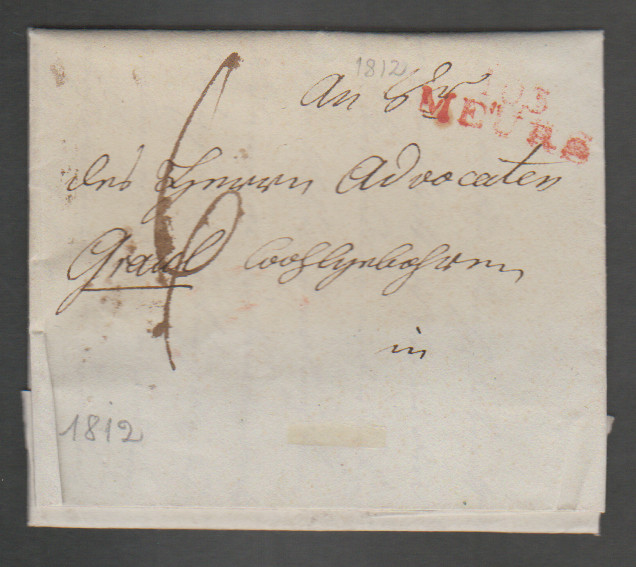 1812
An
103
MEURS
des Herrn Advocaten
Graul Wohlgebohren
in
1812